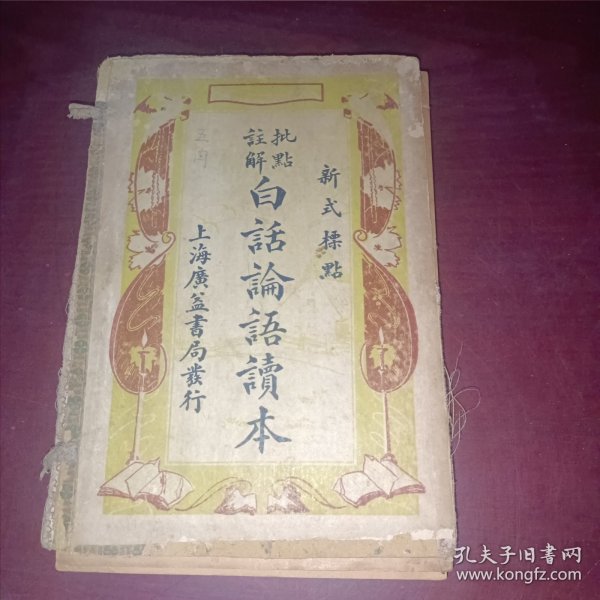 新式標點
批點
註解
白話論語讀本
上海廣益書局發行
五角
孔夫子旧书网
www.kongfz.com